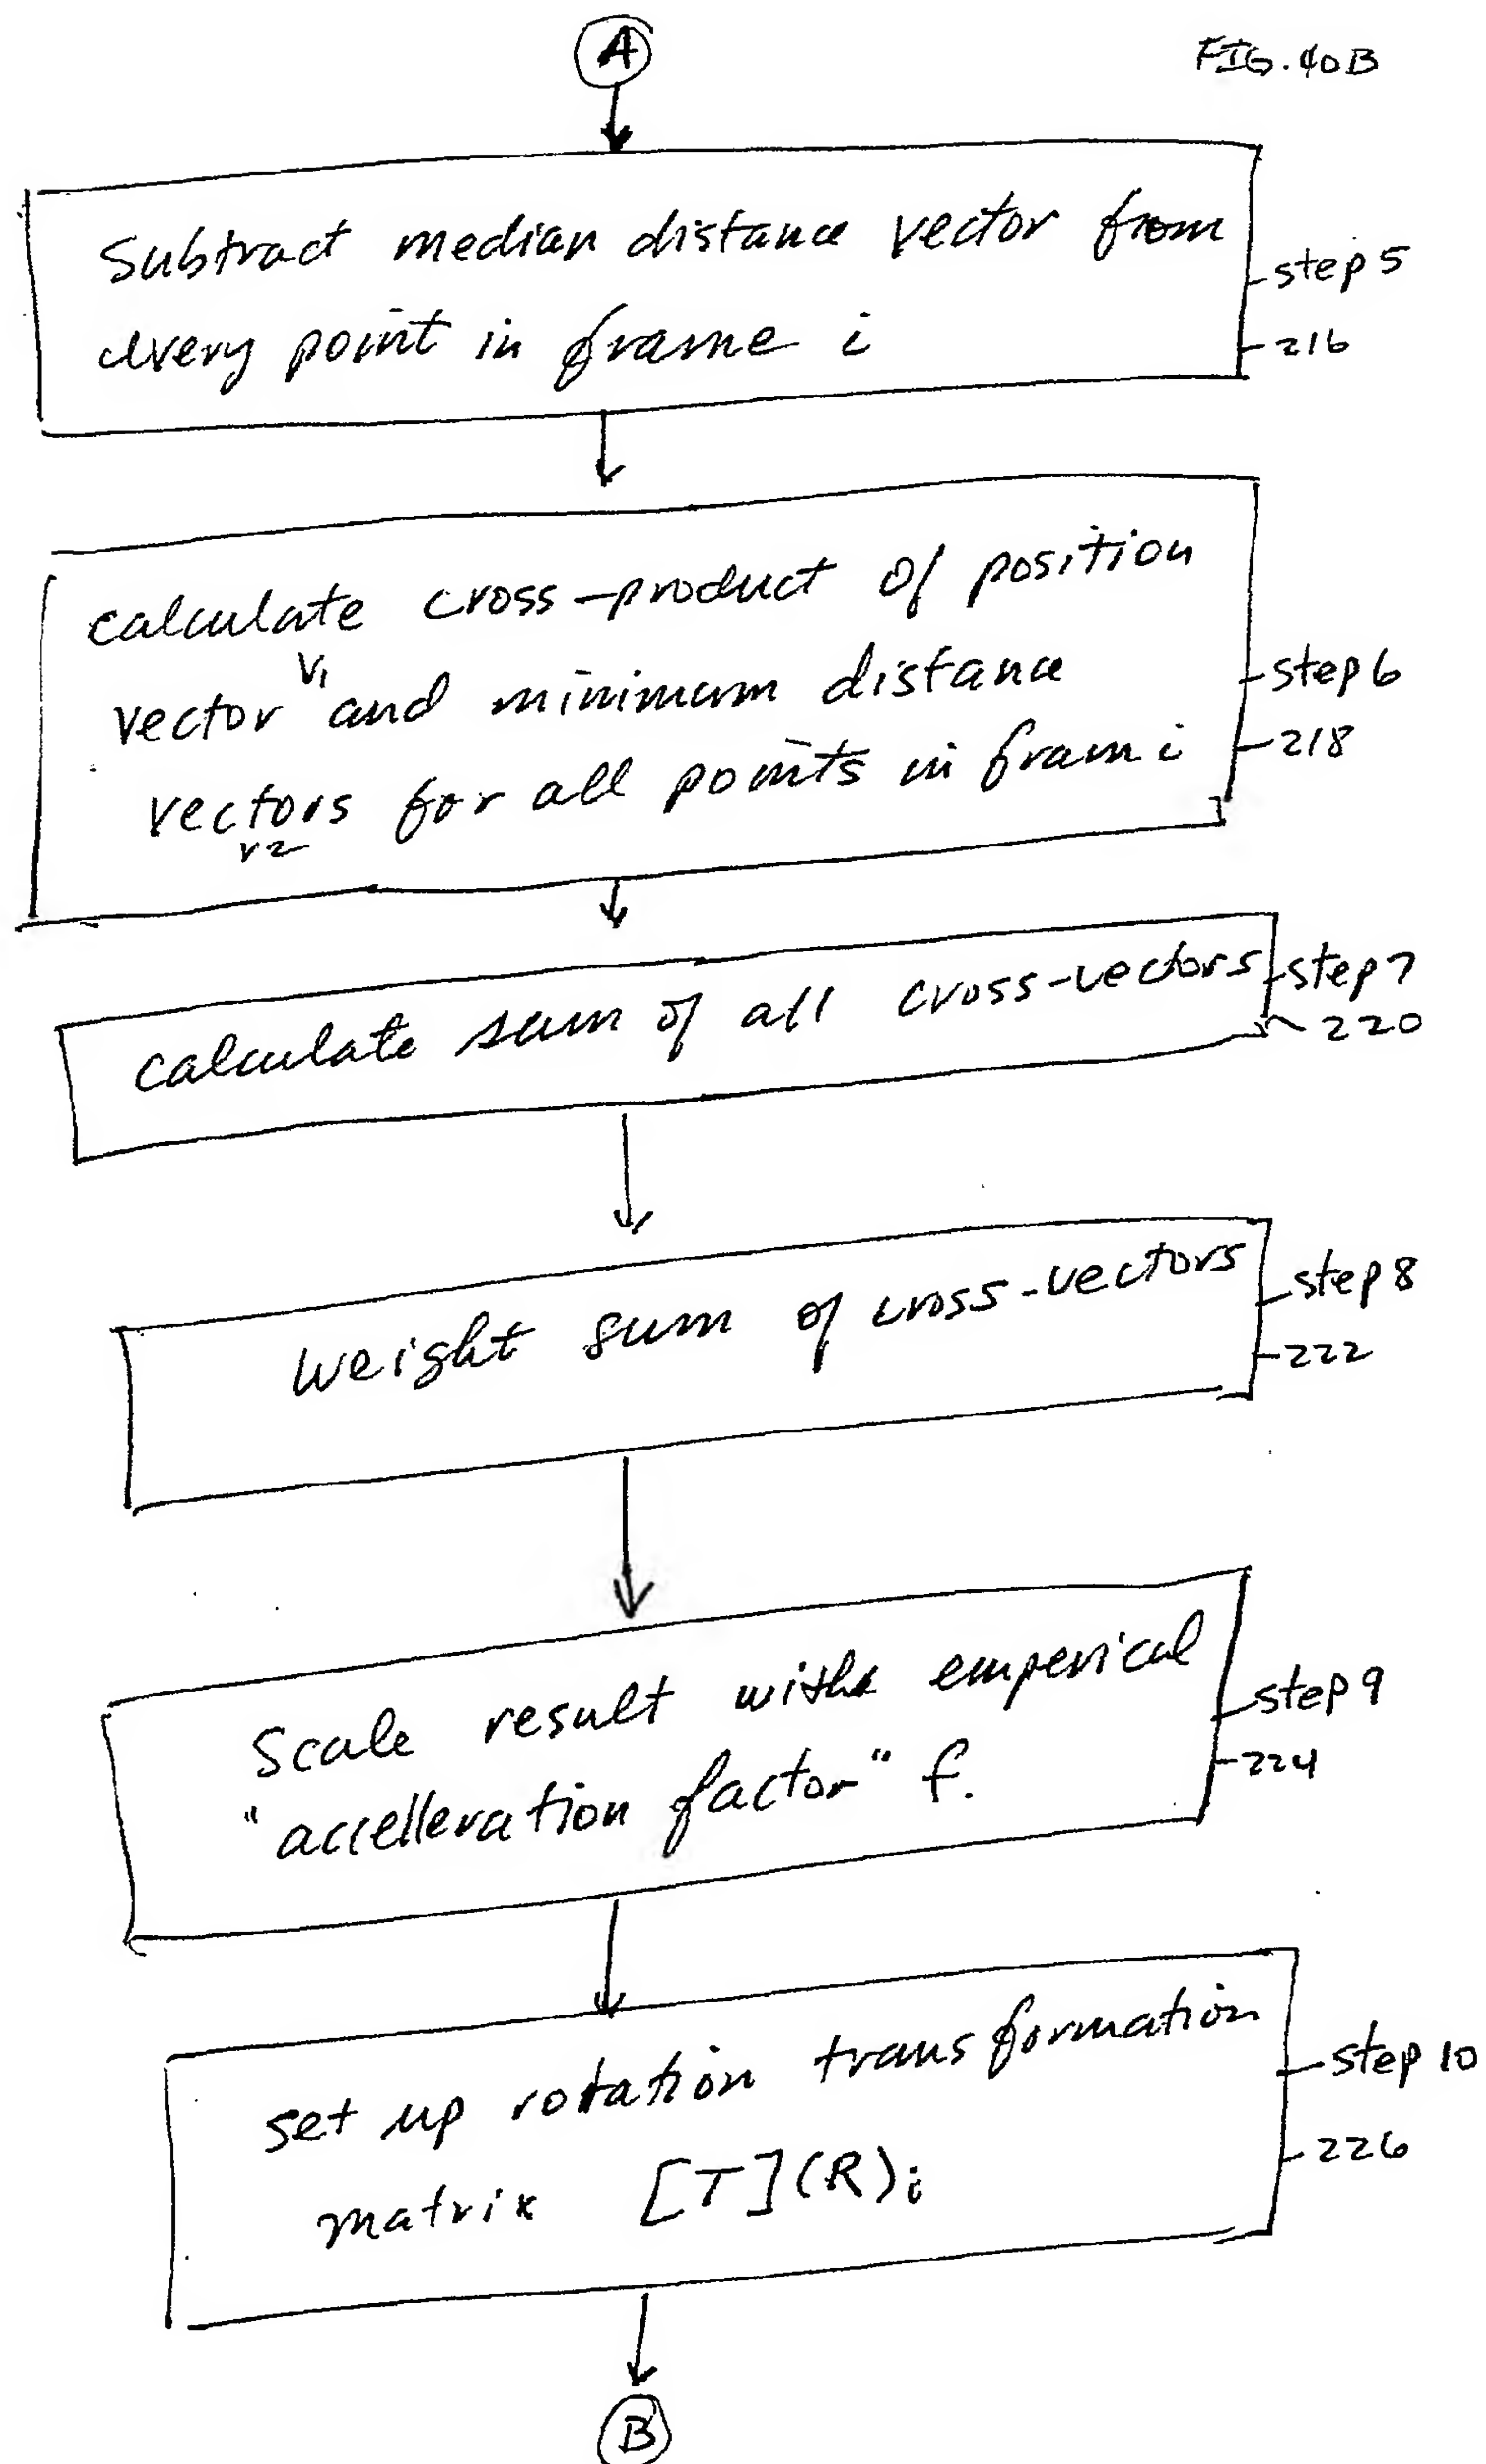 A
FIG. 40B
Subtract median distance vector from
every point in frame i
step 5
216
calculate cross-product of position
V1
vector and minimum distance
vectors for all points in fram i
v2
step 6
218
calculate sum of all cross-vectors
step 7
220
weight sum of cross-vectors
step 8
222
Scale result with emperical
"accelleration factor" f.
step 9
224
set up rotation transformation
matrix [T](R)i
step 10
226
B